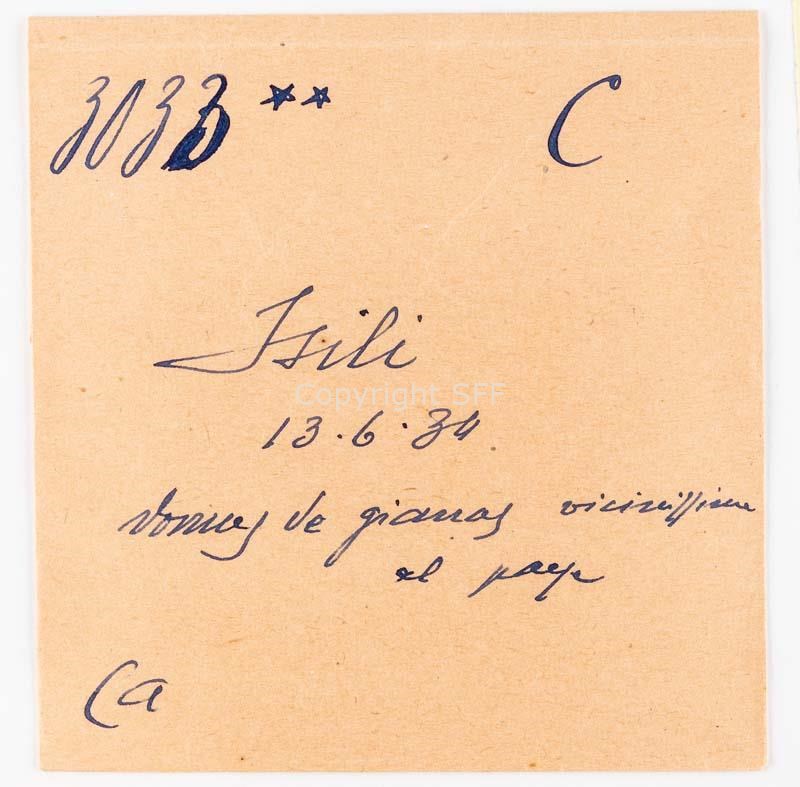 3033 ** C
Isili
Copyright SFF
13.6.34
domus de gianas vicinissime
al paese
Ca